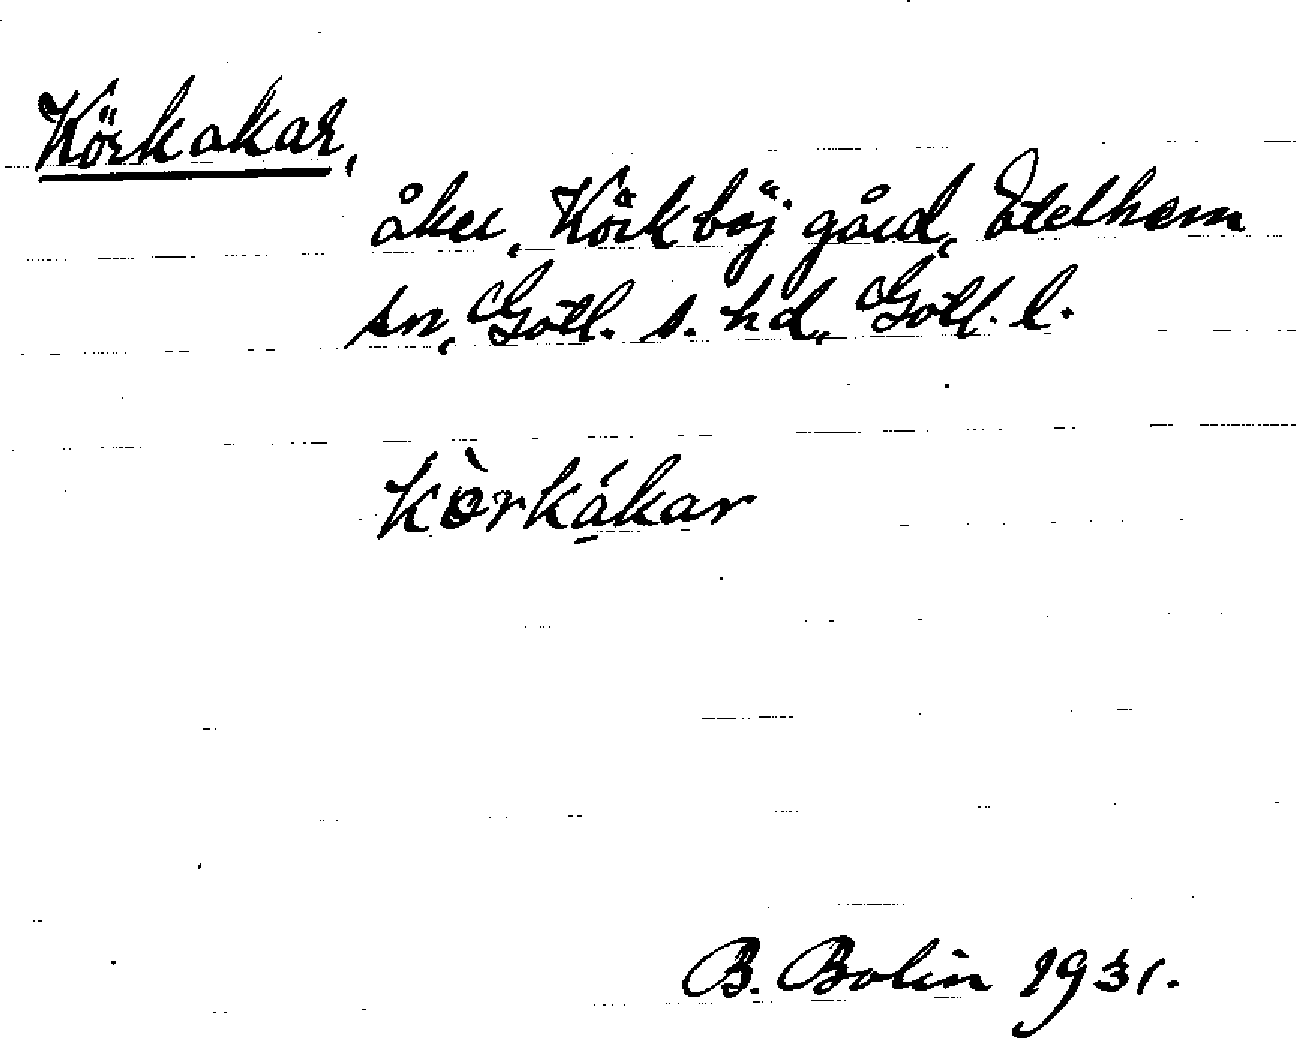 Körkakar,
åker, Körkböj gård, Etelhem
sn, Gotl. s. hd, Gotl. l.
kò̀rkákar
B. Bolin 1931.